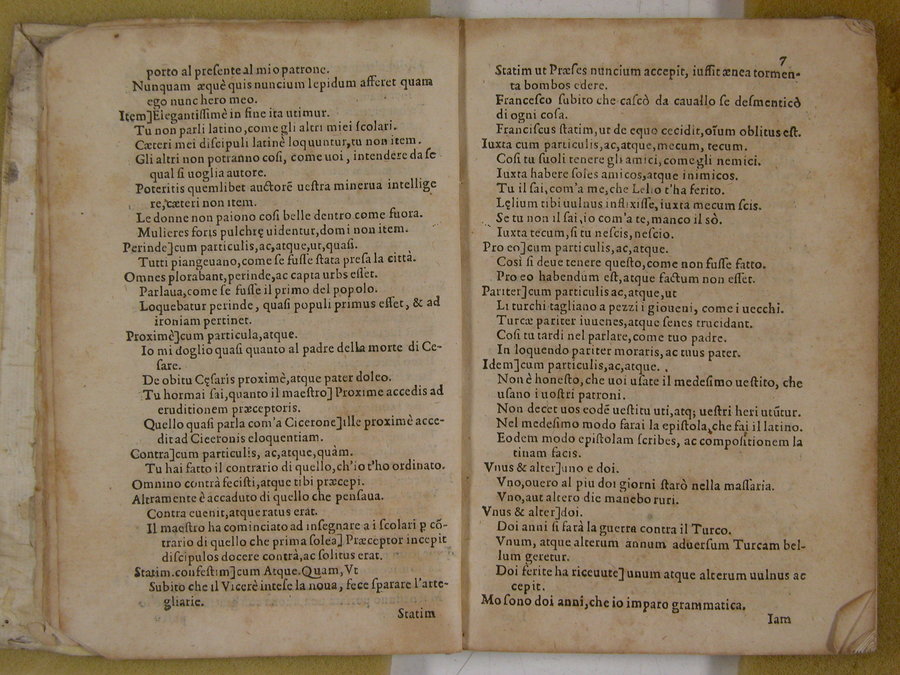 porto al preſente al mio patrone.
Nunquam æquè quis nuncium lepidum afferet quam
ego nunc hero meo.
Item]Elegantiſſimè in fine ita utimur.
Tu non parli latino, come gli altri miei ſcolari.
Cæteri mei diſcipuli latinè loquuntur, tu non item.
Gli altri non potranno coſi, come uoi, intendere da ſe
qual ſi uoglia autore.
Poteritis quemlibet auctorē ueſtra minerua intellige
re, cæteri non item.
Le donne non paiono coſi belle dentro come fuora.
Mulieres foris pulchrę uidentur, domi non item.
Perinde]cum particulis, ac, atque, ut, quaſi.
Tutti piangeuano, come ſe fuſſe ſtata preſa la città.
Omnes plorabant, perinde, ac capta urbs eſſet.
Parlaua, come ſe fuſſe il primo del popolo.
Loquebatur perinde, quaſi populi primus eſſet, & ad
ironiam pertinet.
Proximè]cum particula, atque.
Io mi doglio quaſi quanto al padre della morte di Ce-
ſare.
De obitu Cęſaris proximè, atque pater doleo.
Tu hormai ſai, quanto il maeſtro] Proxime accedis ad
eruditionem præceptoris.
Quello quaſi parla com'a Cicerone]ille proximè acce-
dit ad Ciceronis eloquentiam.
Contra]cum particulis, ac, atque, quàm.
Tu hai fatto il contrario di quello, ch'io t'ho ordinato.
Omnino contrà feciſti, atque tibi præcepi.
Altramente è accaduto di quello che penſaua.
Contra euenit, atque ratus erat.
Il maeſtro ha cominciato ad inſegnare a i ſcolari p cō-
trario di quello che prima ſolea] Præceptor incepit
diſcipulos docere contrà, ac ſolitus erat.
Statim. confeſtim]cum Atque. Quam, Vt
Subito che il Vicerè inteſe la noua, fece ſparare l'arte-
gliarie.
Statim
7
Statim ut Præſes nuncium accepit, iuſſit ænea tormen-
ta bombos edere.
Franceſco ſubito che caſcò da cauallo ſe deſmenticò
di ogni coſa.
Franciſcus ſtatim, ut de equo cecidit, oīum oblitus eſt.
Iuxta cum particulis, ac, atque, mecum, tecum.
Coſi tu ſuoli tenere gli amici, come gli nemici.
Iuxta habere ſoles amicos, atque inimicos.
Tu il ſai, com'a me, che Lelio t'ha ferito.
Lęlium tibi uulnus inflixiſſe, iuxta mecum ſcis.
Se tu non il ſai, io com'a te, manco il sò.
Iuxta tecum, ſi tu neſcis, neſcio.
Pro eo]cum particulis, ac, atque.
Coſi ſi deue tenere queſto, come non fuſſe fatto.
Pro eo habendum eſt, atque factum non eſſet.
Pariter]cum particulis ac, atque, ut
Li turchi tagliano a pezzi i gioueni, come i uecchi.
Turcæ pariter iuuenes, atque ſenes trucidant.
Coſi tu tardi nel parlare, come tuo padre.
In loquendo pariter moraris, ac tuus pater.
Idem]cum particulis, ac, atque.
Non è honeſto, che uoi uſate il medeſimo ueſtito, che
uſano i uoſtri patroni.
Non decet uos eodē ueſtitu uti, atq; ueſtri heri utūtur.
Nel medeſimo modo farai la epiſtola, che fai il latino.
Eodem modo epiſtolam ſcribes, ac compoſitionem la
tinam facis.
Vnus & alter]uno e doi.
Vno, ouero al piu doi giorni ſtarò nella maſſaria.
Vno, aut altero die manebo ruri.
Vnus & alter]doi.
Doi anni ſi farà la guerra contra il Turco.
Vnum, atque alterum annum aduerſum Turcam bel-
lum geretur.
Doi ferite ha riceuute] unum atque alterum uulnus ac
cepit.
Mo ſono doi anni, che io imparo grammatica.
Iam